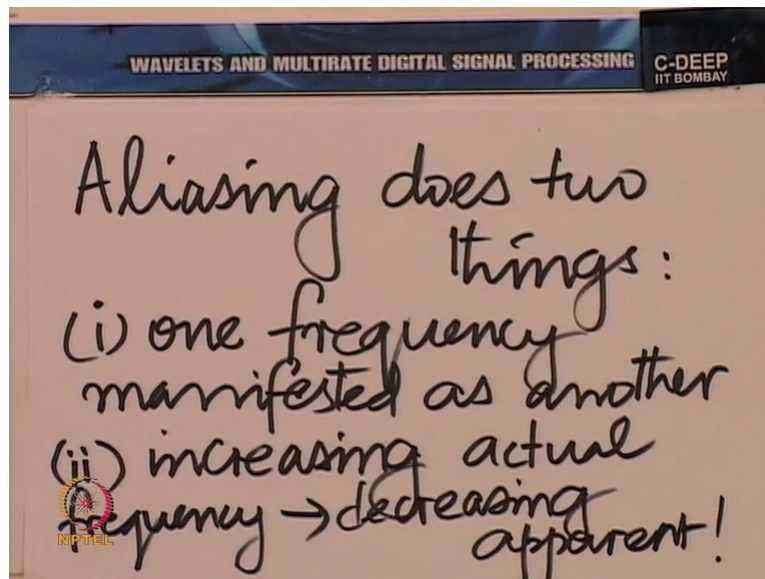 WAVELETS AND MULTIRATE DIGITAL SIGNAL PROCESSING
C-DEEP
IIT BOMBAY
Aliasing does two
things:
(i) one frequency
manifested as another
(ii) increasing actual
frequency → decreasing
apparent!
NPTEL